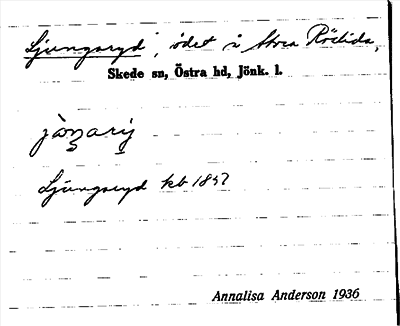 Ljungaryd, ödet å Stora Röslida,
Skede sn, Östra hd, Jönk. l.
Ljungaryd kb 1857
Annalisa Anderson 1936